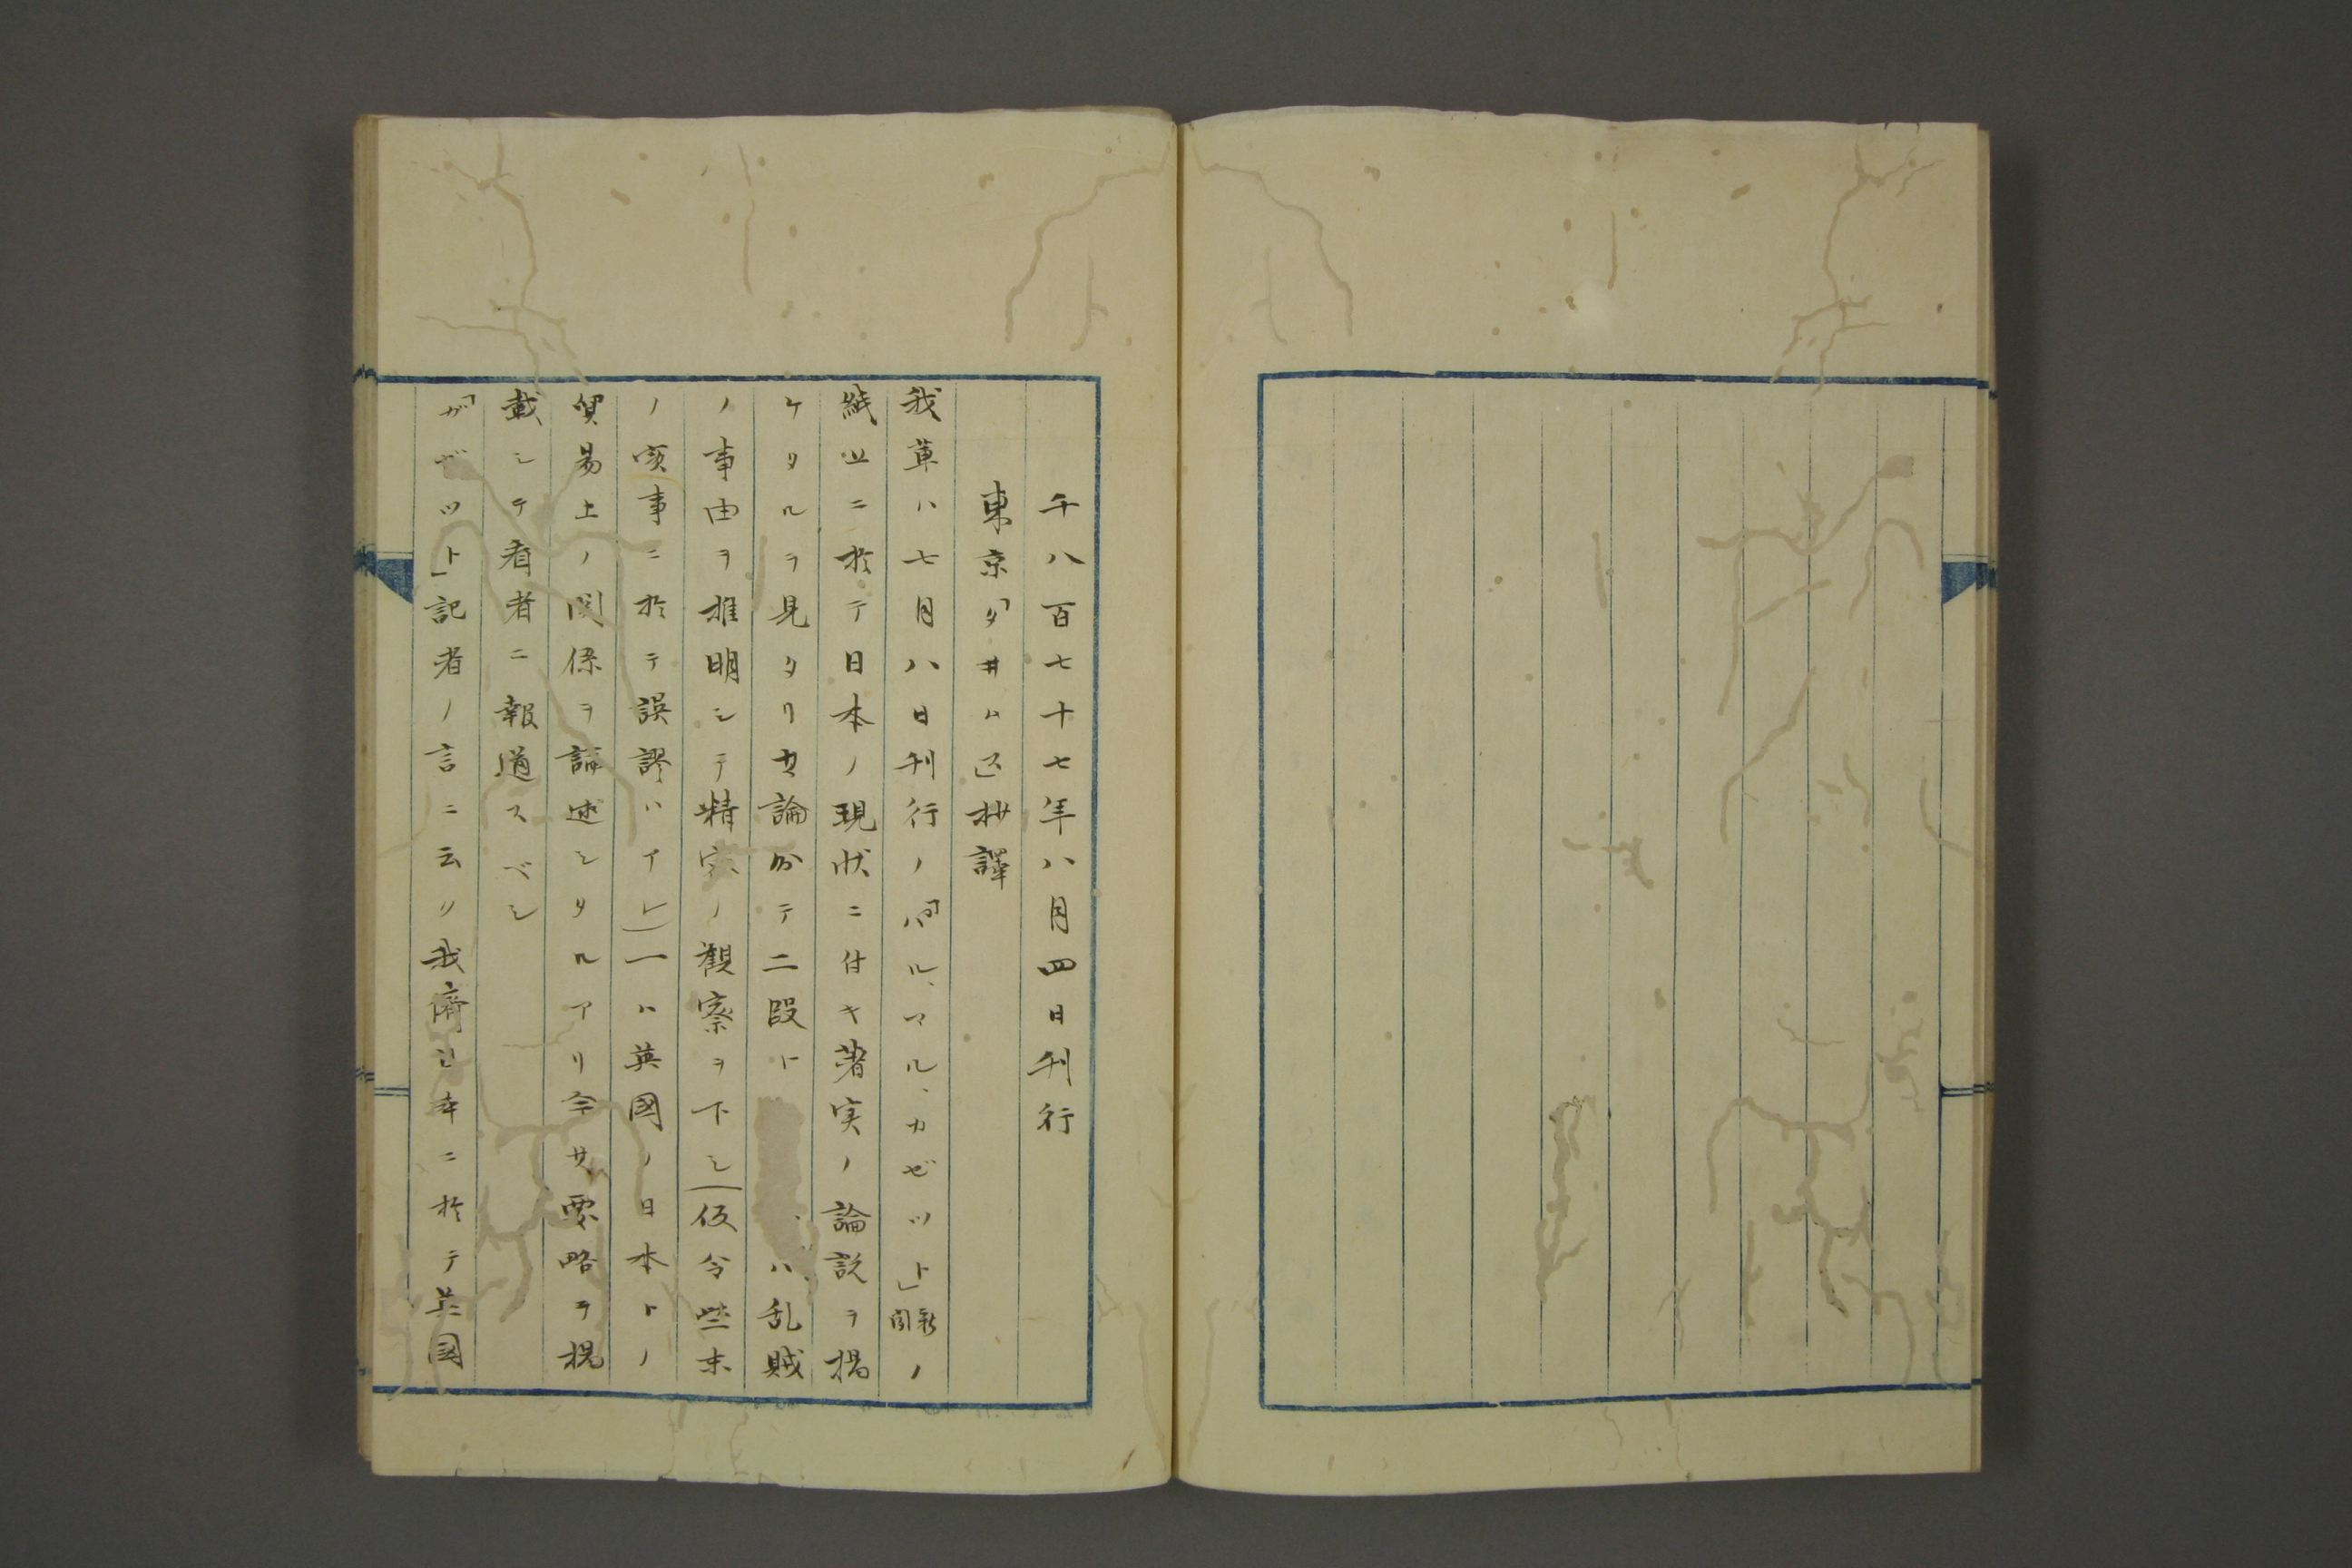 千八百七十七年八月四日刊行
東京「タイムス」抄譯
我輩ハ七月八日刊行ノ「パル, マル, カゼット」新聞ノ
紙上ニ於テ日本ノ現状ニ付キ著実ノ論説ヲ掲
ケタルヲ見タリ其論分テ二段ト ハ乱賊
ノ事由ヲ推明シテ精密ノ觀察ヲ下シ仮令些末
ノ瑣事ニ於テ誤謬ハアレ一ハ英國ノ日本トノ
貿易上ノ関係ヲ論述シタルアリ今其要略ヲ掲
載シテ看者ニ報道スベシ
「ガゼット」記者ノ言ニ云リ我儕 年ニ於テ英國